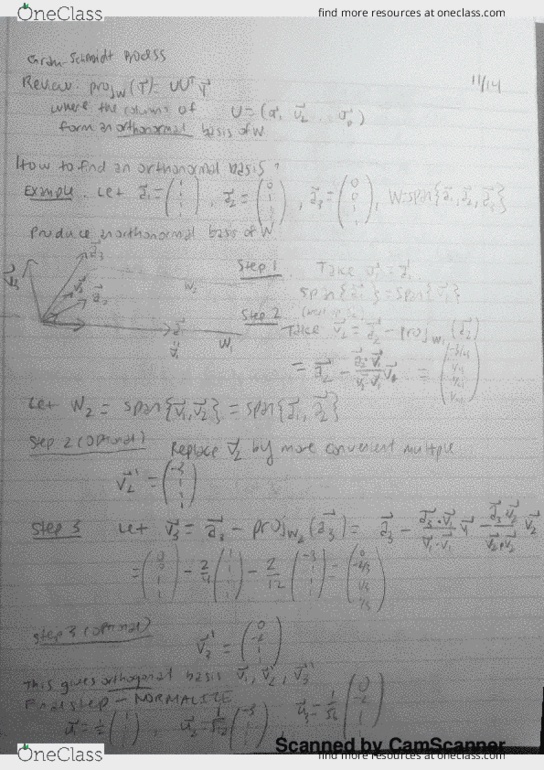 OneClass
find more resources at oneclass.com
Gram-Schmidt Process
11/14
Review: proj_W(v⃗) = UUᵀv⃗
where the columns of U = (u⃗₁ u⃗₂ ... u⃗ₚ)
form an orthonormal basis of W.
How to find an orthonormal basis?
Example. Let a⃗₁ = (1 1 1 1), a⃗₂ = (0 1 1 1), a⃗₃ = (0 0 1 1), W = span{a⃗₁, a⃗₂, a⃗₃}
Produce an orthonormal basis of W
a⃗₃
v⃗₃
v⃗₂
a⃗₂
W₂
a⃗₁
v⃗₁
W₁
Step 1. Take v⃗₁ = a⃗₁
span{a⃗₁} = span{v⃗₁}
Step 2
Take v⃗₂ = a⃗₂ - proj_W₁(a⃗₂)
= a⃗₂ - (a⃗₂·v⃗₁)/(v⃗₁·v⃗₁) v⃗₁ = (-3/4 1/4 1/4 1/4)
Let W₂ = span{v⃗₁, v⃗₂} = span{a⃗₁, a⃗₂}
Step 2 (optional) Replace v⃗₂ by more convenient multiple
v⃗₂' = (-3 1 1 1)
Step 3 Let v⃗₃ = a⃗₃ - proj_W₂(a⃗₃) = a⃗₃ - (a⃗₃·v⃗₁)/(v⃗₁·v⃗₁) v⃗₁ - (a⃗₃·v⃗₂)/(v⃗₂·v⃗₂) v⃗₂
= (0 0 1 1) - 2/4 (1 1 1 1) - 2/12 (-3 1 1 1) = (0 -2/3 1/3 1/3)
Step 3 (optional) v⃗₃' = (0 -2 1 1)
This gives orthogonal basis v⃗₁, v⃗₂', v⃗₃'
Final step - NORMALIZE
u⃗₁ = 1/2 (1 1 1 1), u⃗₂ = 1/√12 (-3 1 1 1) u⃗₃ = 1/√6 (0 -2 1 1)
Scanned by CamScanner
OneClass
find more resources at oneclass.com